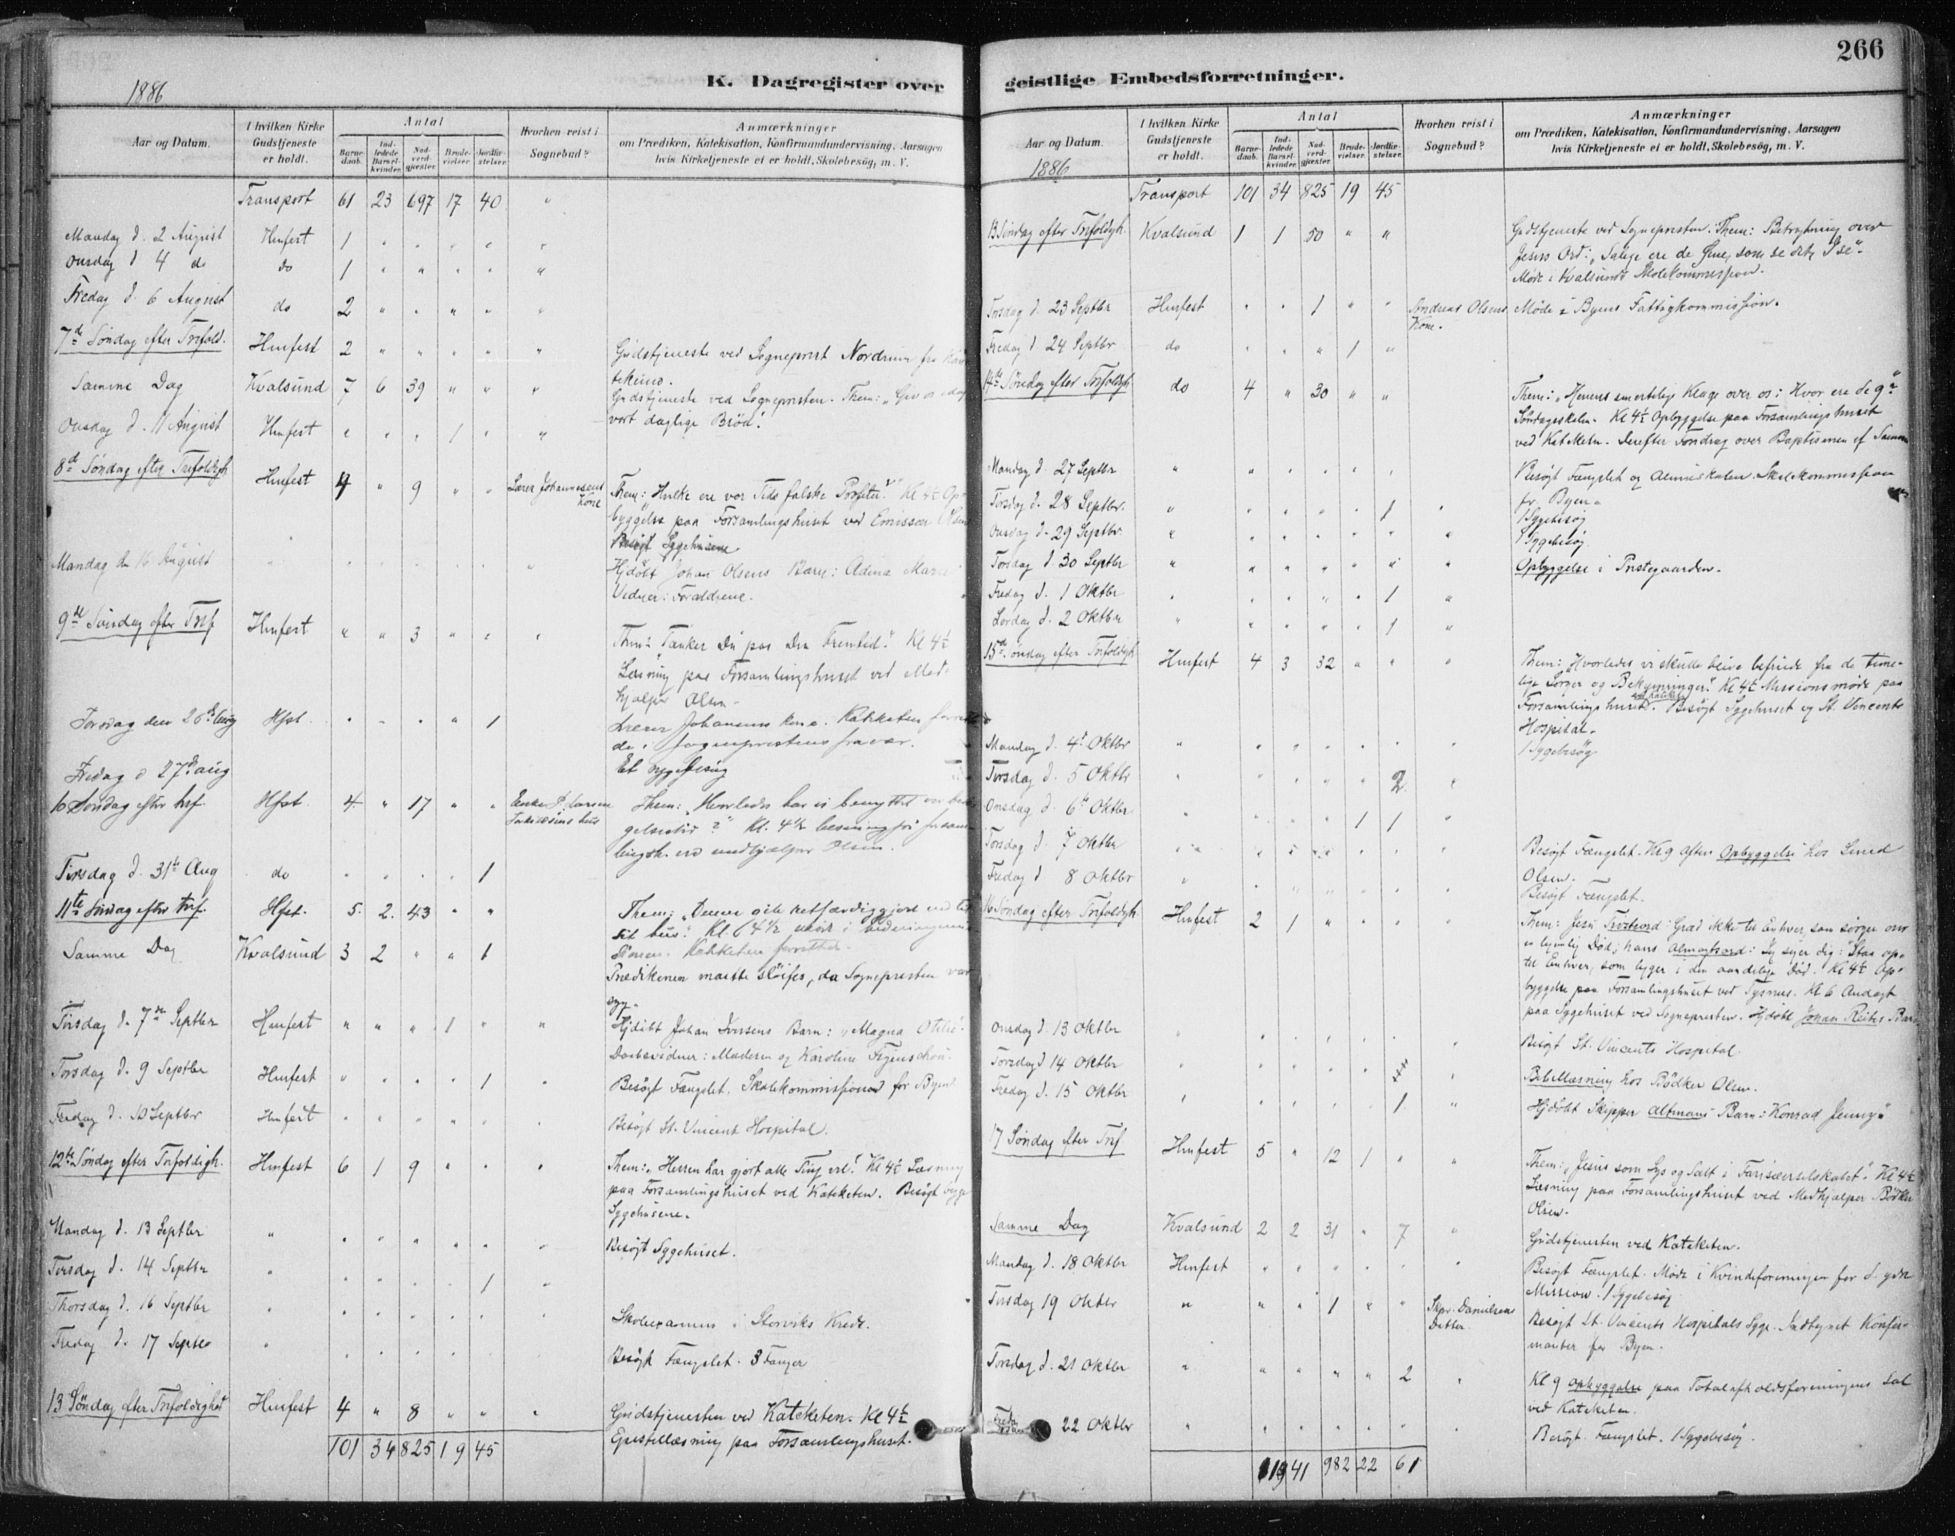 266
K. Dagregister over geistlige Embedsforretninger.
1886
Aar og Datum.
I hvilken Kirke Gudstjeneste er holdt.
Antal
Barne-daab.
Ind-ledede Barsel-kvinder.
Nad-verd-gjester.
Brude-vielser.
Jordfæ-stelser.
Hvorhen reist i Sognebud?
Anmærkninger
om Prædiken, Katekisation, Konfirmandundervisning. Aarsagen
hvis Kirketjeneste ei er holdt, Skolebesög, m. V.
Transport 61 23 697 17 40 "
Mandag d. 2 August Hmfest 1 " " " " "
Onsdag d 4 do do 1 " " " " "
Fredag d. 6 August do 2 " " " " "
7de Søndag efter Trefold. Hmfest 2 " " " " " Gudstjeneste ved Sogneprest Nordrum fra
Samme Dag Kvalsund 7 6 39 " " " Gudstjeneste ved Sognepresten. Them: "Giv os idag
vort daglige Bröd".
Onsdag d. 11 August Hmfest " " " 1 " "
8de Søndag efter Trefoldgh Hmfest 4 " 9 " " Lærer Johannesens Kone Them: Hvilke ere vor Tids falske Profeter?" Kl 4½ Op-
byggelse paa Forsamlingshuset ved Emissær
Besøgt Sygehusene
Mandag den 16 August " " " " " " " Hjdöbt Johan Olsens Barn: Adena Marie
Vidner: Forældrene.
9de Søndag efter Tref Hmfest " " 3 " " " Them: "Tænker Du paa Din Fremtid?" Kl 4½
Læsning paa Forsamlingshuset ved Med-
hjælper Olsen.
Torsdag den 26de Aug Hfst. " " " " 1 Lærer Johannesens Kone. Kateketen forrette-
de i Sogneprestens fravær.
Fredag d 27de aug Et sygebesøg
10 Søndag efter tref. Hfst. 4 " 17 " " Them: "Hvorledes har vi benyttet vor
? Kl. 4½ læsning på forsam-
lingsh. ved medhjælper Olsen.
Tirsdag d. 31te Aug do " " " " 1
11te Søndag efter tref. Hfst. 5. 2. 43 " " Them: "Denne gik retfærdiggjort ned til
sit hus." Kl. 4½ møde i
Katekketen forrettede.
Samme Dag Kvalsund 3 2 " " 1 Prædikenen maatte slöifes, da Sognepresten var
syg.
Tirsdag d. 7de Septber Hmfest " " " 1 " " Hjdöbt Johan Iversens Barn: "Magna Otelie".
Daabsvidner: Moderen og Karoline Figenschou.
Torsdag d. 9 Septbr Hmfest " " " " 1 " Besøgt Fængslet. Skolekommissionen for Byen
Fredag d. 10 Septbr Hmfest " " " " " Besøgt St. Vincent Hospital.
12te Søndag efter Trefoldigh. Hmfest 6 1 9 " " " Them: "Herren har gjort alle Ting vel". Kl 4½ Læsning
paa Forsamlingshuset ved Kateketen. Besøgt
Sygehusene.
Mandag d. 13 Septbr " " " " " " " Besøgt Sygehuset.
Tirsdag d. 14 Septbr " " " " " 1 "
Thorsdag d. 16 Septbr " " " " " " " Skolexamen i Storviks Kreds.
Fredag d. 17 Septbr " " " " " " Besøgt Fængslet. 3 Fanger
13 Søndag efter Trefoldighet Hmfest 4 " 8 " " " Gudstjenesten ved Kateketen. Kl 4½
Epistellæsning paa Forsamlingshuset.
101 34 825 19 45
Aar og Datum.
1886
I hvilken Kirke Gudstjeneste er holdt.
Antal
Barne-daab.
Ind-ledede Barsel-kvinder.
Nad-verd-gjester.
Brude-vielser.
Jordfæ-stelser.
Hvorhen reist i Sognebud?
Anmærkninger
om Prædiken, Katekisation, Konfirmandundervisning. Aarsagen
hvis Kirketjeneste ei er holdt, Skolebesög, m. V.
Transport 101 34 825 19 45
13 Søndag efter Trefoldgh. Kvalsund 1 1 50 " " Gudstjeneste ved Sognepresten. Them: Betragtning over
Jesus Ord: "Salige ere de Øine, som se det, I se".
Møde i Kvalsunds Skolekommission.
Torsdag d. 23 Septbr Hmfest " " 1 " " Andreas Olsens Kone. Møde i Byens Fattigkommission.
Fredag d 24 Septbr do " " " 1 "
14te Søndag efter Trefoldgh do 4 " 30 " " Them: "Herrens smertelige Klage over os: Hvor ere de 9".
Søndagsskolen. Kl 4½ Opbyggelse paa Forsamlingshuset
ved Kateketen. Derefter Foredrag over Baptismen af Samme
Mandag d. 27 Septbr " " " " " " Besøgt Fængslet og Almueskolen. Skolekommission
for Byen.
Tirsdag d. 28 Septbr. " " " " " 1 " 1 Sygebesøg
Onsdag d. 29 Septbr " " " " " " " 1 Sygebesøg.
Torsdag d. 30 Septbr " " " " " " " Opbyggelse i Prestegaarden.
Fredag d. 1 Oktbr " " " " " 1 "
Lørdag d. 2 Oktbr " " " " " 1 "
15de Søndag efter Trefoldgh. Hmfest 4 3 32 " " " Them: "Hvorledes vi skulle blive befriede fra de time-
lige Sorger og Bekymringer." Kl 4½ Missionsmøde paa
Forsamlingshuset. Besøgt Sygehuset og St. Vincents
Hospital.
Mandag d. 4de Oktbr " " " " " " " 1 Sygebesøg
Tirsdag d. 5 Oktbr " " " " " 2 "
Onsdag d. 6te Oktbr " " " " 1 1 "
Torsdag d. 7 Oktbr " " " " " " " Besøgt Fængslet. Kl 9 Aften Opbyggelse hos Smed
Olsen.
Fredag d 8 Oktbr " " " " " " " Besøgt Fængslet.
16 Søndag efter Trefoldgh. Hmfest 2 1 " " " " Them: Jesu Trösteord: Græd ikke til Enhver, som sørger over
en legemlig Död; hans Almagtsord: Jeg siger dig: Staa op.
til Enhver, som ligger i den aandelige Död. Kl 4½ Op-
byggelse paa Forsamlingshuset ved Kl 6 Andagt
paa Sygehuset ved Sognepresten. Hjdöbt Johan Barn
Onsdag d. 13 Oktbr " " " " " " " Besøgt St. Vincents Hospital.
Torsdag d 14 Oktbr " " " " " Bibellæsning hos Bødker Olsen.
Fredag d. 15 Oktbr " " " " " 1 " Hjdöbt Skipper Altmans Barn: Konrad Jenny"
17 Søndag efter Tref Hmfest 5 " 12 1 " " Them: "Jesus som Lys og Salt i Farisæerselskabet". Kl 4½
Læsning paa Forsamlingshuset ved Medhjælper Bødker
Olsen.
Samme Dag Kvalsund 2 2 31 " 7 " Gudstjenesten ved Kateketen.
Mandag d. 18 Oktbr Hmfest " " " " " " Besøgt Fængslet. Møde i Kvindeforeningen for d. ydre
Mission. 1 Sygebesøg
Tirsdag 19 Oktbr " " " 1 " " Skpr. Danielsens Datter. Besøgt St. Vincents Hospitals Syge. Indtegnet Konfir-
manter for Byen.
Torsdag d. 21 Oktbr " " " " " 2 " Kl 9 Opbyggelse paa Totalafholdsforeningens Sal
ved Kateketen.
Fredag 22 Oktbr " " " " " " " Besøgt Fængslet. 1 Sygebesøg.
119 41 982 22 61